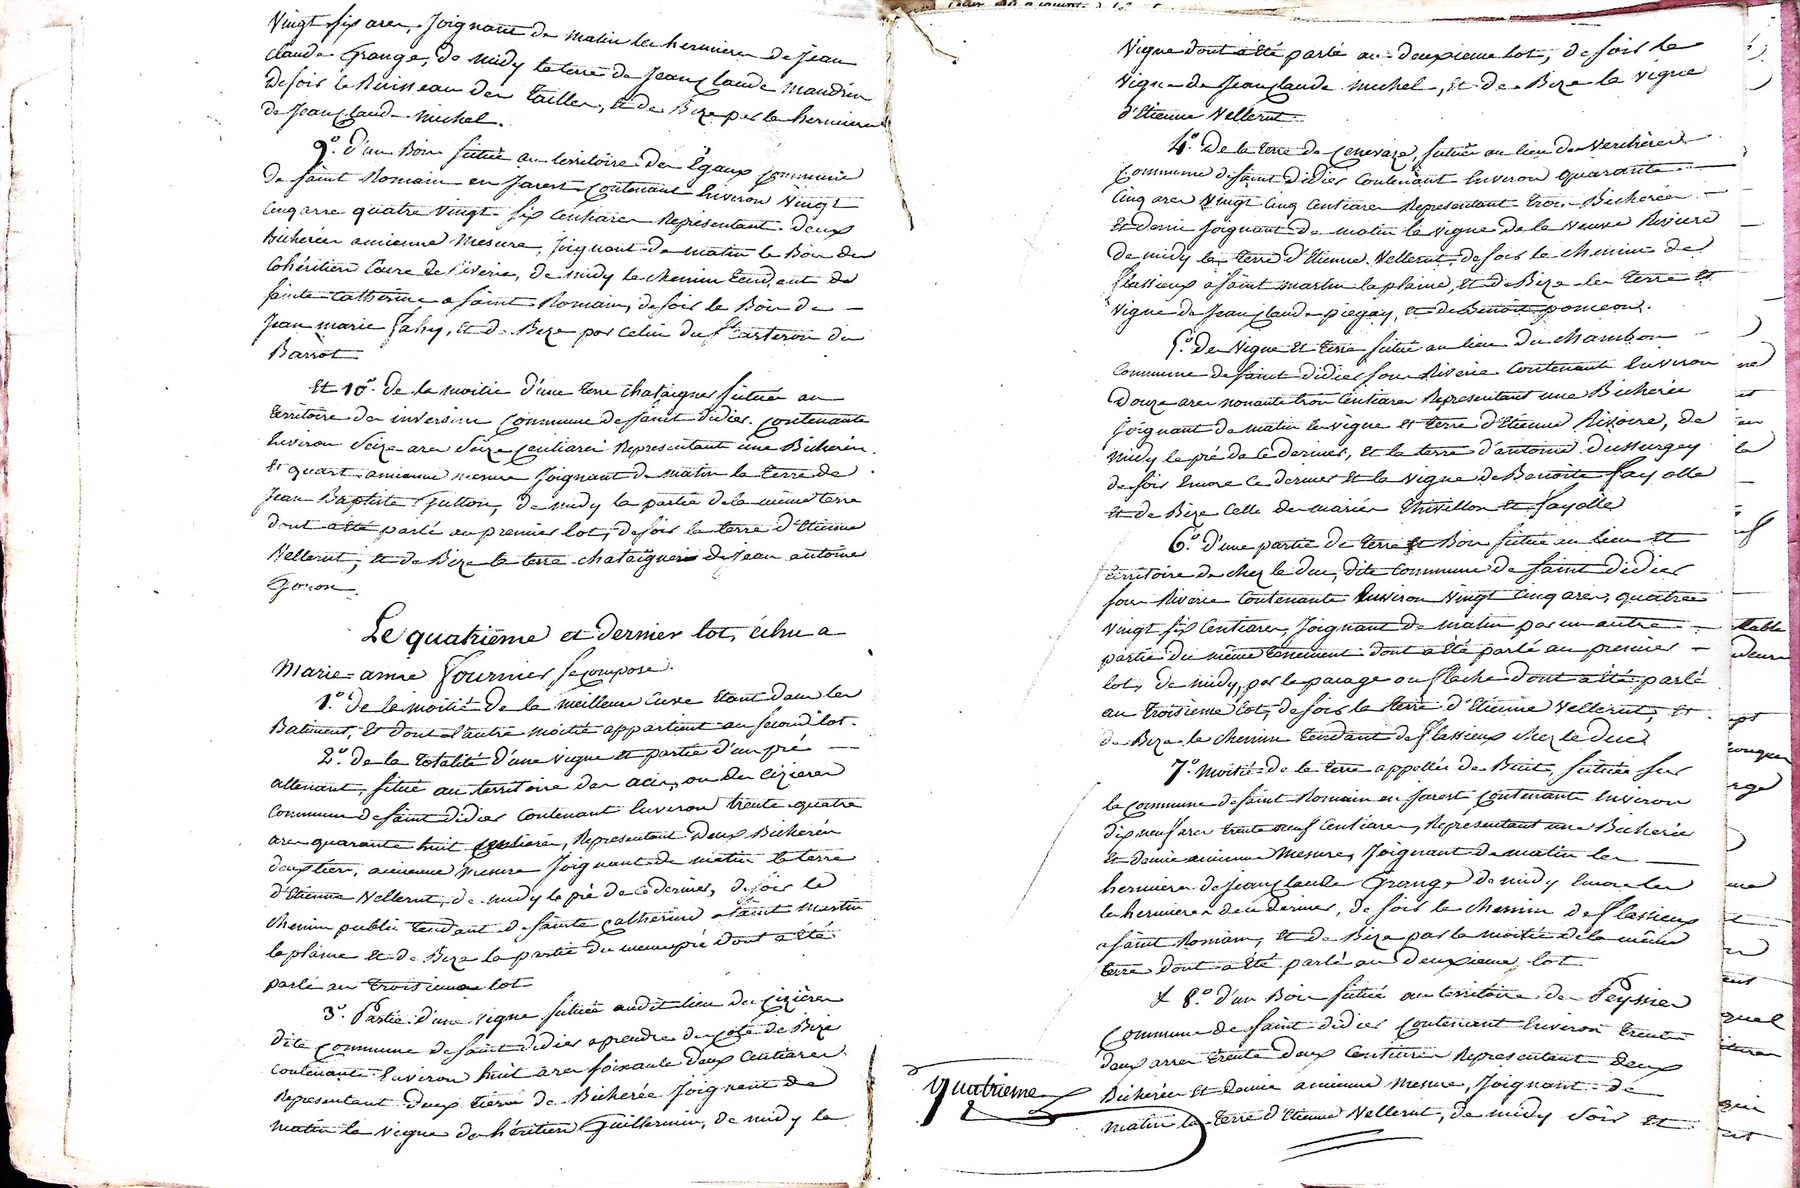 Vingt six ares, Joignant de matin les hermieres de Jean
Claude Grange, de midy la terre de Jean Claude Mandrin
de soir le Ruisseau des Tailles, et de Bize par le hermiere
de Jean Claude Michel.
9.° d'un Bois située au territoire des Egaux Commune
de Saint Romain en Jarest Contenant Environ Vingt
Cinq ares quatre Vingt Six Centiares Représentant deux
Bicherées ancienne Mesure, Joignant de matin le Bois des
Cohéritiers de Riverie, de midy le chemin tend,ant de
Sainte Catherine a Saint Romain, de soir le Bois de —
Jean Marie Fahy, et de Bize par Celui du S.r Carteron du
Barrot
Et 10.° de la moitié d'une terre Chataigner Située au
territoire de inversin Commune de Saint Didier. Contenante
Environ Seize ares Seize Centiares Représentant une Bicherée.
Et quart ancienne mesure Joignant de matin la terre de
Jean Baptiste Jullon, de midy la partie de la même terre
dont a été parlé au premier lot, de soir la terre d'Etienne
Vellerut, et de Bize la terre chataigner de Jean antoine
Gonon.
Le quatrième et dernier lot, échu a
Marie-anne Fournier Se compose.
1.° de la moitié de la meilleure Cuve Etant dans les
Batiments, Et dont l'autre moitié appartient au second lot.
2.° de la totalité d'une vigne et partie d'un pré —
attenant, situé au territoire des acis, ou des Cizieres
Commune de Saint Didier Contenant Environ trente quatre
ares quarante huit Centiares, Représentant deux Bicherées
deux tiers, ancienne mesure Joignant de matin la terre
d'Etienne Vellerut, de midy le pré de ce dernier, de soir le
Chemin public tendant de Sainte Catherine a Saint Martin
la plaine et de Bize la partie du meme pré dont a été
parlé au Troisieme lot
3.° Partie d'une vigne située audit lieu des Cizières
dite Commune de Saint Didier a prendre du coté de Bize
Contenante Environ huit ares soixante deux Centiares.
Représentant deux Tiers de Bicherée Joignent de
matin la vigne des héritiers Guillermin, de midy la
Vigne dont a été parlé au deuxieme lot, de soir la
Vigne de Jean Claude Michel, Et de Bize la vigne
d'Etienne Vellerut
4.° De la terre de Genevaze, située au lieu des Verchères
Commune de Saint Didier Contenant Environ quarante —
Cinq ares Vingt Cinq Centiares Représentant trois Bicherées —
Et demi Joignant de matin la vigne de la Veuve Riviere
de midy la terre d'Etienne Vellerut, de soir le chemin de
flassieux a Saint martin la plaine, et de Bize les terre Et
Vigne de Jean Claude piegay, et de Benoit poncon.
5.° De vigne et terre située au lieu du Chambon —
Commune de Saint Didier sous Riverie Contenante Environ
Douze ares nonante trois Centiares Représentant une Bicherée
Joignant de matin la vigne et terre d'Etienne Rivoire, de
midy le pré de ce dernier, et la terre d'antoine Dussurgey
de soir Encore ce dernier Et la vigne de Benoite fayolle
et de Bize Celle des mariés Thivillon et fayolle
6.° d'une partie de terre et Bois située au lieu et
territoire de chez le duc, dite Commune de Saint Didier
sous Riverie Contenante Environ Vingt Cinq ares, quatre
vingt six Centiares, Joignant de matin par un autre —
partie du même tenement dont a été parlé au premier —
lot, de midy, par le pacage ou flache dont a été parlé
au troisieme lot, de soir la terre d'Etienne Vellerut, et
de Bize le chemin tendant de flassieux chez le duc
7.° moitié de la terre appellée de Buit, située sur
la Commune de Saint Romain en Jarest Contenante Environ
dix neuf ares trente neuf Centiares, Représentant une Bicherée
et demie ancienne Mesure, Joignant de matin les —
hermieres de Jean Claude Grange de midy Encore les
les hermieres de ce dernier, de soir le chemin de flassieux
a Saint Romain, et de Bize par la moitié de la même
terre dont a été parlé au deuxieme lot
& 8.° d'un Bois situé au territoire de Peysnier
Commune de Saint Didier Contenant Environ trente
deux ares trente deux Centiares Représentant deux
Bicherées et demie ancienne mesure, Joignant de
matin la terre d'Etienne Vellerut, de midy Soir et
quatrieme